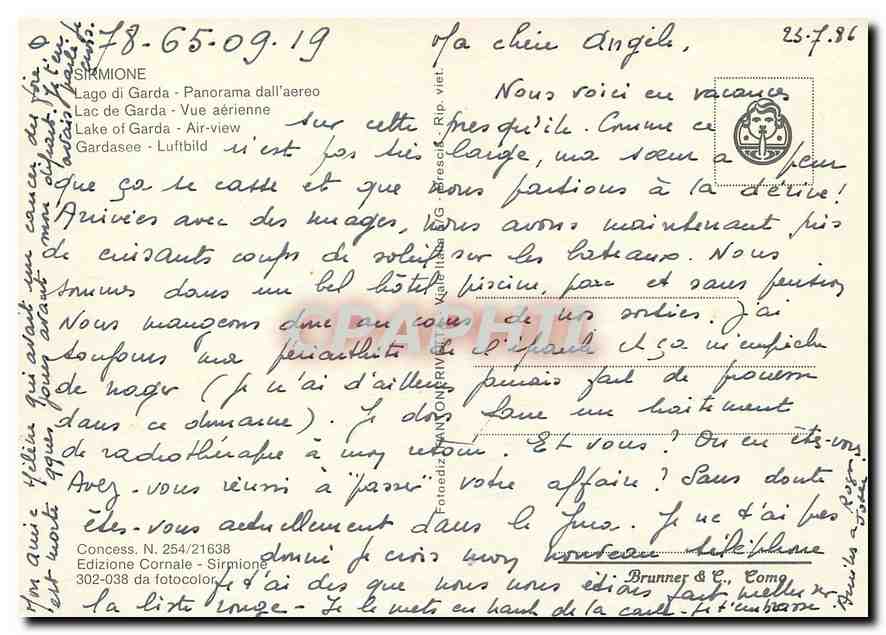 78-65-09.19
Ma chère Angèle,
23.7.86
SIRMIONE
Lago di Garda - Panorama dall'aereo
Lac de Garda - Vue aérienne
Lake of Garda - Air-view
Gardasee - Luftbild
Nous voici en vacances
sur cette presqu'île. Comme ce
n'est pas très large, ma sœur a peur
que ça se casse et que nous partions à la dérive!
Arrivées avec des nuages, nous avons maintenant pris
de cuisants coups de soleil sur les bateaux. Nous
sommes dans un bel hôtel, piscine, parc et sans pension
Nous mangeons donc au cours de nos sorties. J'ai
toujours ma périarthrite de l'épaule et ça m'empêche
de nager (je n'ai d'ailleurs jamais fait de prouesse
dans ce domaine). Je dois faire un traitement
de radiothérapie à mon retour. Et vous? Où en êtes-vous.
Avez-vous réussi à "passer" votre affaire? Sans doute
êtes-vous actuellement dans le Jura. Je ne t'ai pas
donné je crois mon nouveau téléphone
Je t'ai dès que nous nous étions fait mettre sur
la liste rouge - Je le mets en haut de la carte. Je t'embrasse
Amitiés à Roger
Mon amie Hélène qui avait un cancer du foie
est morte qques jours avant mon départ. Je t'en
avais parlé je crois.
Concess. N. 254/21638
Edizione Cornale - Sirmione
302-038 da fotocolor
Brunner & C., Como
Rip. viet.
CPAPHIL